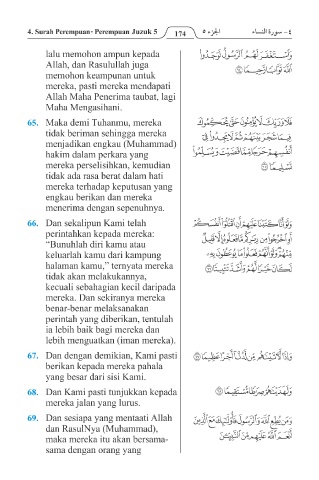 4. Surah Perempuan· Perempuan Juzuk 5
174
الجزء ٥
٤ - سورة النساء
lalu memohon ampun kepada
Allah, dan Rasulullah juga
memohon keampunan untuk
mereka, pasti mereka mendapati
Allah Maha Penerima taubat, lagi
Maha Mengasihani.
وَٱسۡتَغۡفَرَ لَهُمُ ٱلرَّسُولُ لَوَجَدُواْ
ٱللَّهَ تَوَّابٗا رَّحِيمٗا ٦٤
65. Maka demi Tuhanmu, mereka
tidak beriman sehingga mereka
menjadikan engkau (Muhammad)
hakim dalam perkara yang
mereka perselisihkan, kemudian
tidak ada rasa berat dalam hati
mereka terhadap keputusan yang
engkau berikan dan mereka
menerima dengan sepenuhnya.
فَلَا وَرَبِّكَ لَا يُؤۡمِنُونَ حَتَّىٰ يُحَكِّمُوكَ
فِيمَا شَجَرَ بَيۡنَهُمۡ ثُمَّ لَا يَجِدُواْ فِيٓ
أَنفُسِهِمۡ حَرَجٗا مِّمَّا قَضَيۡتَ وَيُسَلِّمُواْ
تَسۡلِيمٗا ٦٥
66. Dan sekalipun Kami telah
perintahkan kepada mereka:
“Bunuhlah diri kamu atau
keluarlah kamu dari kampung
halaman kamu,” ternyata mereka
tidak akan melakukannya,
kecuali sebahagian kecil daripada
mereka. Dan sekiranya mereka
benar-benar melaksanakan
perintah yang diberikan, tentulah
ia lebih baik bagi mereka dan
lebih menguatkan (iman mereka).
وَلَوۡ أَنَّا كَتَبۡنَا عَلَيۡهِمۡ أَنِ ٱقۡتُلُوٓاْ أَنفُسَكُمۡ
أَوِ ٱخۡرُجُواْ مِن دِيَٰرِكُم مَّا فَعَلُوهُ إِلَّا قَلِيلٞ
مِّنۡهُمۡۖ وَلَوۡ أَنَّهُمۡ فَعَلُواْ مَا يُوعَظُونَ بِهِۦ
لَكَانَ خَيۡرٗا لَّهُمۡ وَأَشَدَّ تَثۡبِيتٗا ٦٦
67. Dan dengan demikian, Kami pasti
berikan kepada mereka pahala
yang besar dari sisi Kami.
وَإِذٗا لَّأٓتَيۡنَٰهُم مِّن لَّدُنَّآ أَجۡرًا عَظِيمٗا ٦٧
68. Dan Kami pasti tunjukkan kepada
mereka jalan yang lurus.
وَلَهَدَيۡنَٰهُمۡ صِرَٰطٗا مُّسۡتَقِيمٗا ٦٨
69. Dan sesiapa yang mentaati Allah
dan RasulNya (Muhammad),
maka mereka itu akan bersama-
sama dengan orang yang
وَمَن يُطِعِ ٱللَّهَ وَٱلرَّسُولَ فَأُوْلَٰٓئِكَ مَعَ ٱلَّذِينَ
أَنۡعَمَ ٱللَّهُ عَلَيۡهِم مِّنَ ٱلنَّبِيِّـۧنَ